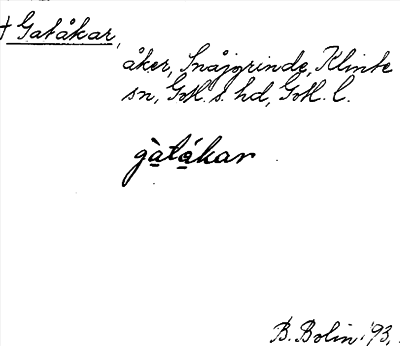 † Gatåkar,
åker, Snäjgrinde, Klinte
sn, Gotl. s. hd, Gotl. l.
gàtákar
B. Bolin '93.